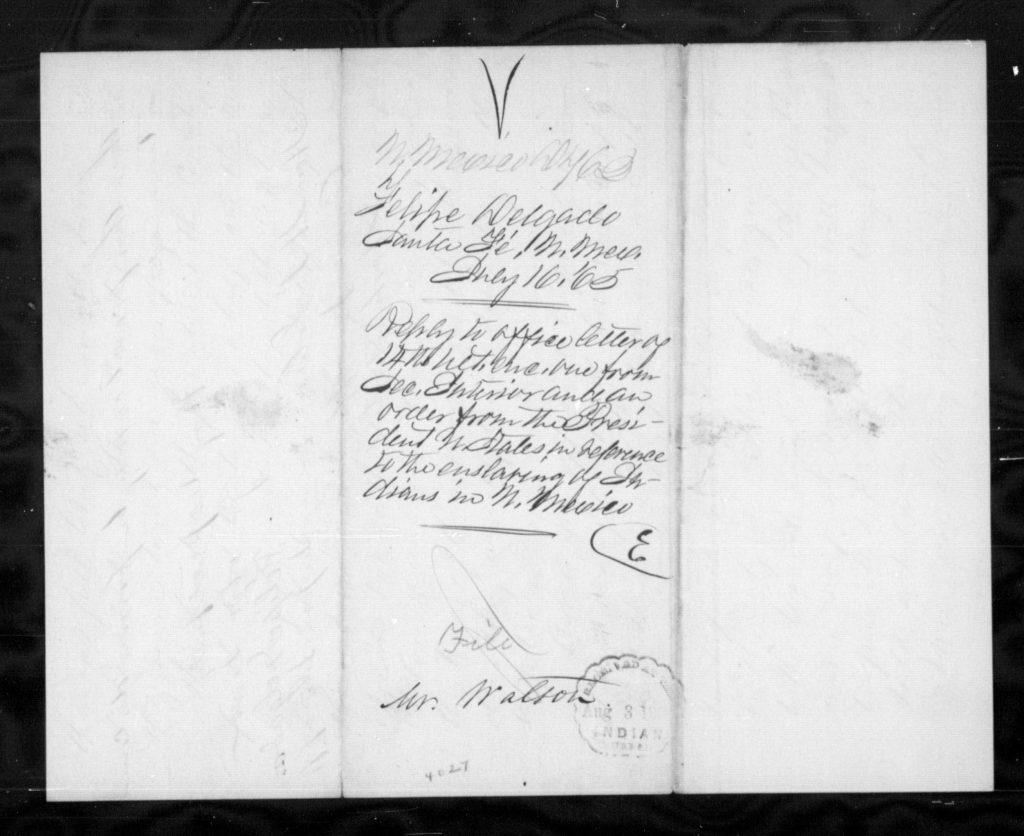 N. Mexico D/65
Felipe Delgado
Santa Fé, N. Mexo.
July 16. '65
Reply to office letter of
14th ult. enc. one from
Sec. Interior and an
order from the Presi-
dent U. States in reference
to the enslaving of In-
dians in N. Mexico
E
File
Mr. Watson
RECEIVED
Aug 3
INDIAN
4027